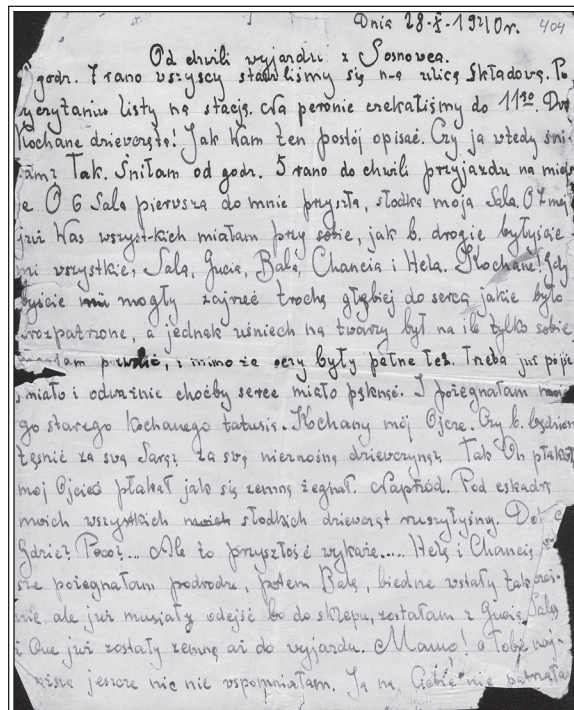 Dnia 28-X-1940r.
404
Od chwili wyjazdu z Sosnowca.
godz. 7 rano wszyscy stawiliśmy się na ulicę Składową. Po
czytaniu listy na stację. Na peronie czekaliśmy do 11³⁰.
Kochane dziewczęta! Jak Wam ten postój opisać. Czy ja wtedy śni-
łam? Tak. Śniłam od godz. 5 rano do chwili przyjazdu na miejs
O 6 Sala pierwsza do mnie przyszła, słodka moja Sala. O 7 mej
już Was wszyst-kich miałam przy sobie, jak b. drogie byłyście
mi wszystkie, Sala, Gucia, Bala, Chancia i Hela. Kochane! Gdy
byście mogły zajrzeć trochę głębiej do serca jakie było
rozpatrzone, a jednak uśmiech na twarzy był na ile tylko sobie
i mimo że oczy były pełne łez. Trzeba już pójść
śmiało i odważnie choćby serce miało pęknąć. I pożegnałam
go starego kochanego tatusia. Kochany mój Ojcze. Czy b. będziesz
tęsnić za swą Sarą? za swą nieznośną dziewczyną? Tak On płakał
moj Ojciec płakał jak się zemną żegnał. Naprzód. Pod eskadrą
moich wszystkich słodkich dziewcząt ruszyłyśmy.
Gdzie? Poco?... Ale to przyszłość wykaże..... Helę i Chancię
pożegnałam podrodze, potem Balę, biedne wstały tak
nie ale już musiały odejść bo do sklepu, zostałam z Gucią, Salą
i One już zostały zemną aż do wyjazdu. Mamo! o Tobie naj-
jeszcze nic nie wspomniałam. Ja na Ciebie nie patrzałam